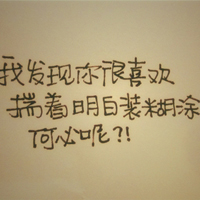 我发现你很喜欢
揣着明白装糊涂
何必呢?!